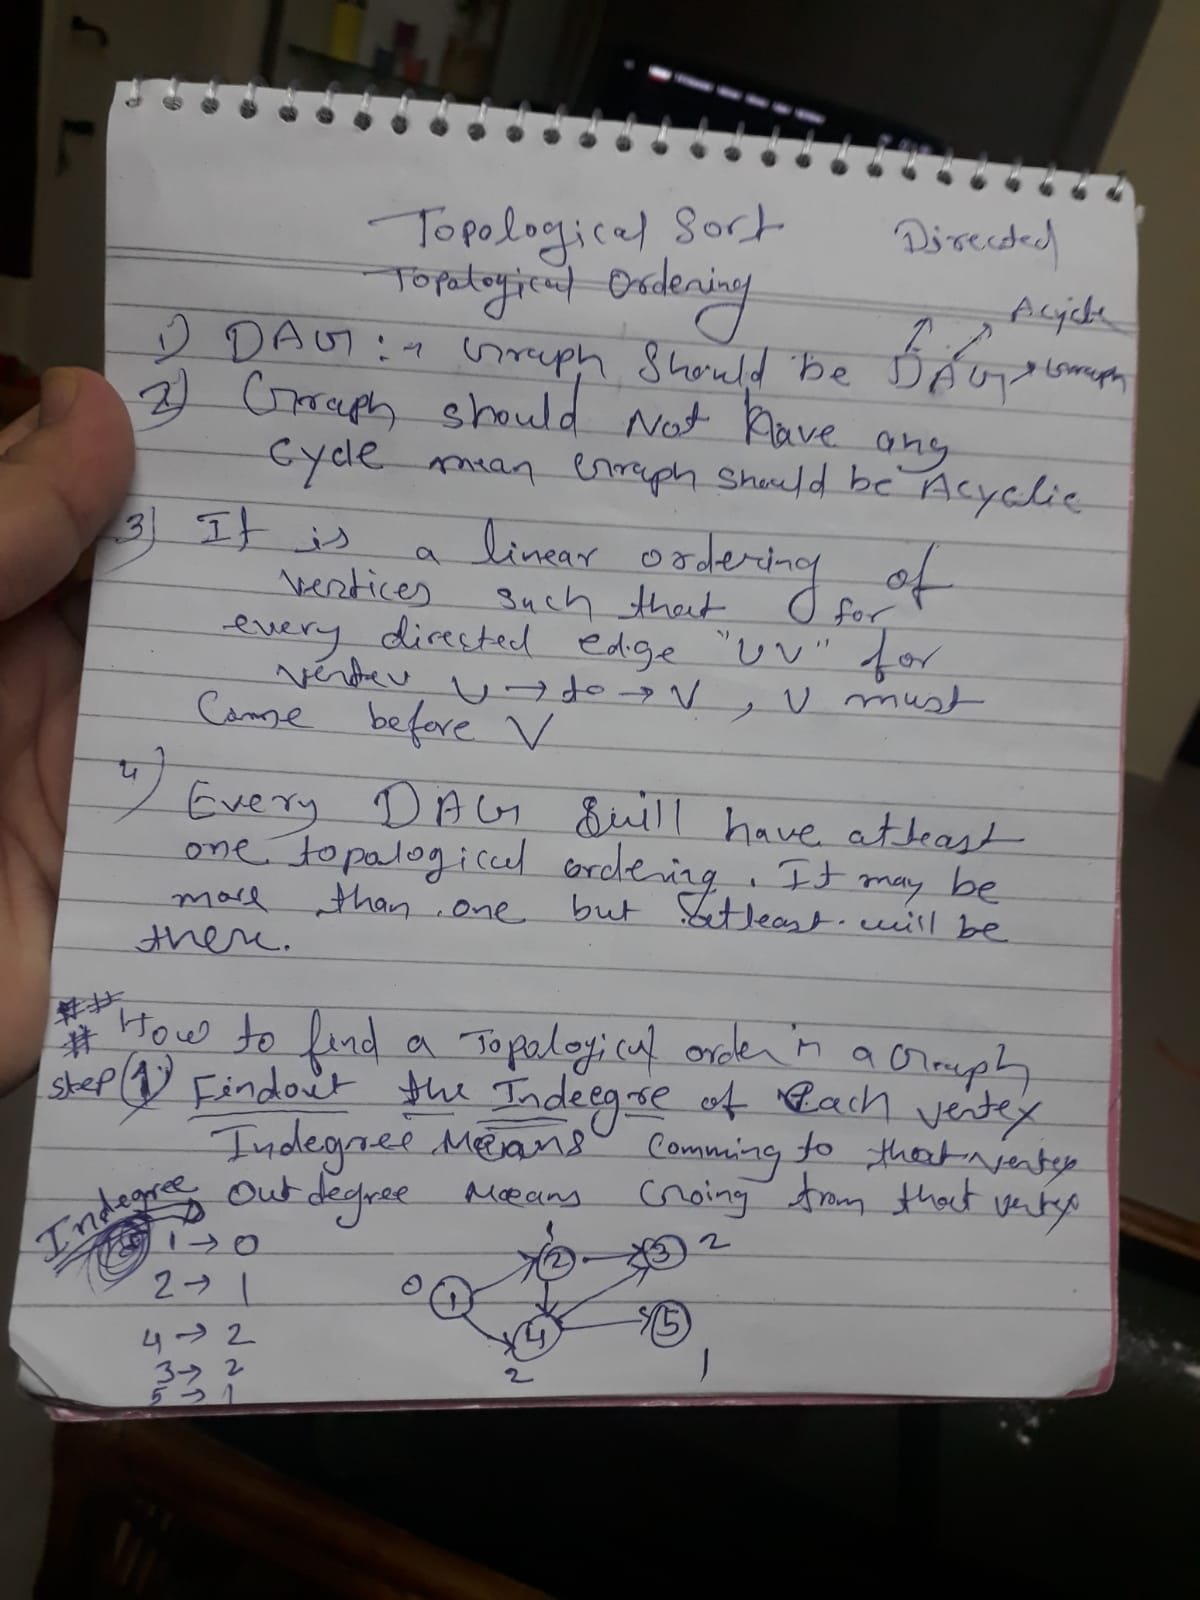 Topological Sort Directed
Topological Ordering
Acycle
1) DAG :→ Graph Should be DAG → Graph
2) Graph should Not have any
Cycle mean Graph should be Acyclic
3) It is a linear ordering of
vertices such that for
every directed edge "UV" for
vertex U → to → V , U must
Come before V
4)
Every DAG will have atleast
one topological ordering. It may be
more than one but atleast will be
there.
##
# How to find a Topological order in a Graph
Step (1) Findout the Indeegre of Each vertex
Indegree Means Comming to that vertex
Outdegree Means Going from that vertex
Indegree
1 → 0
2 → 1
4 → 2
3 → 2
5 → 1
1
0 1 2 3 2
4 5
2 1